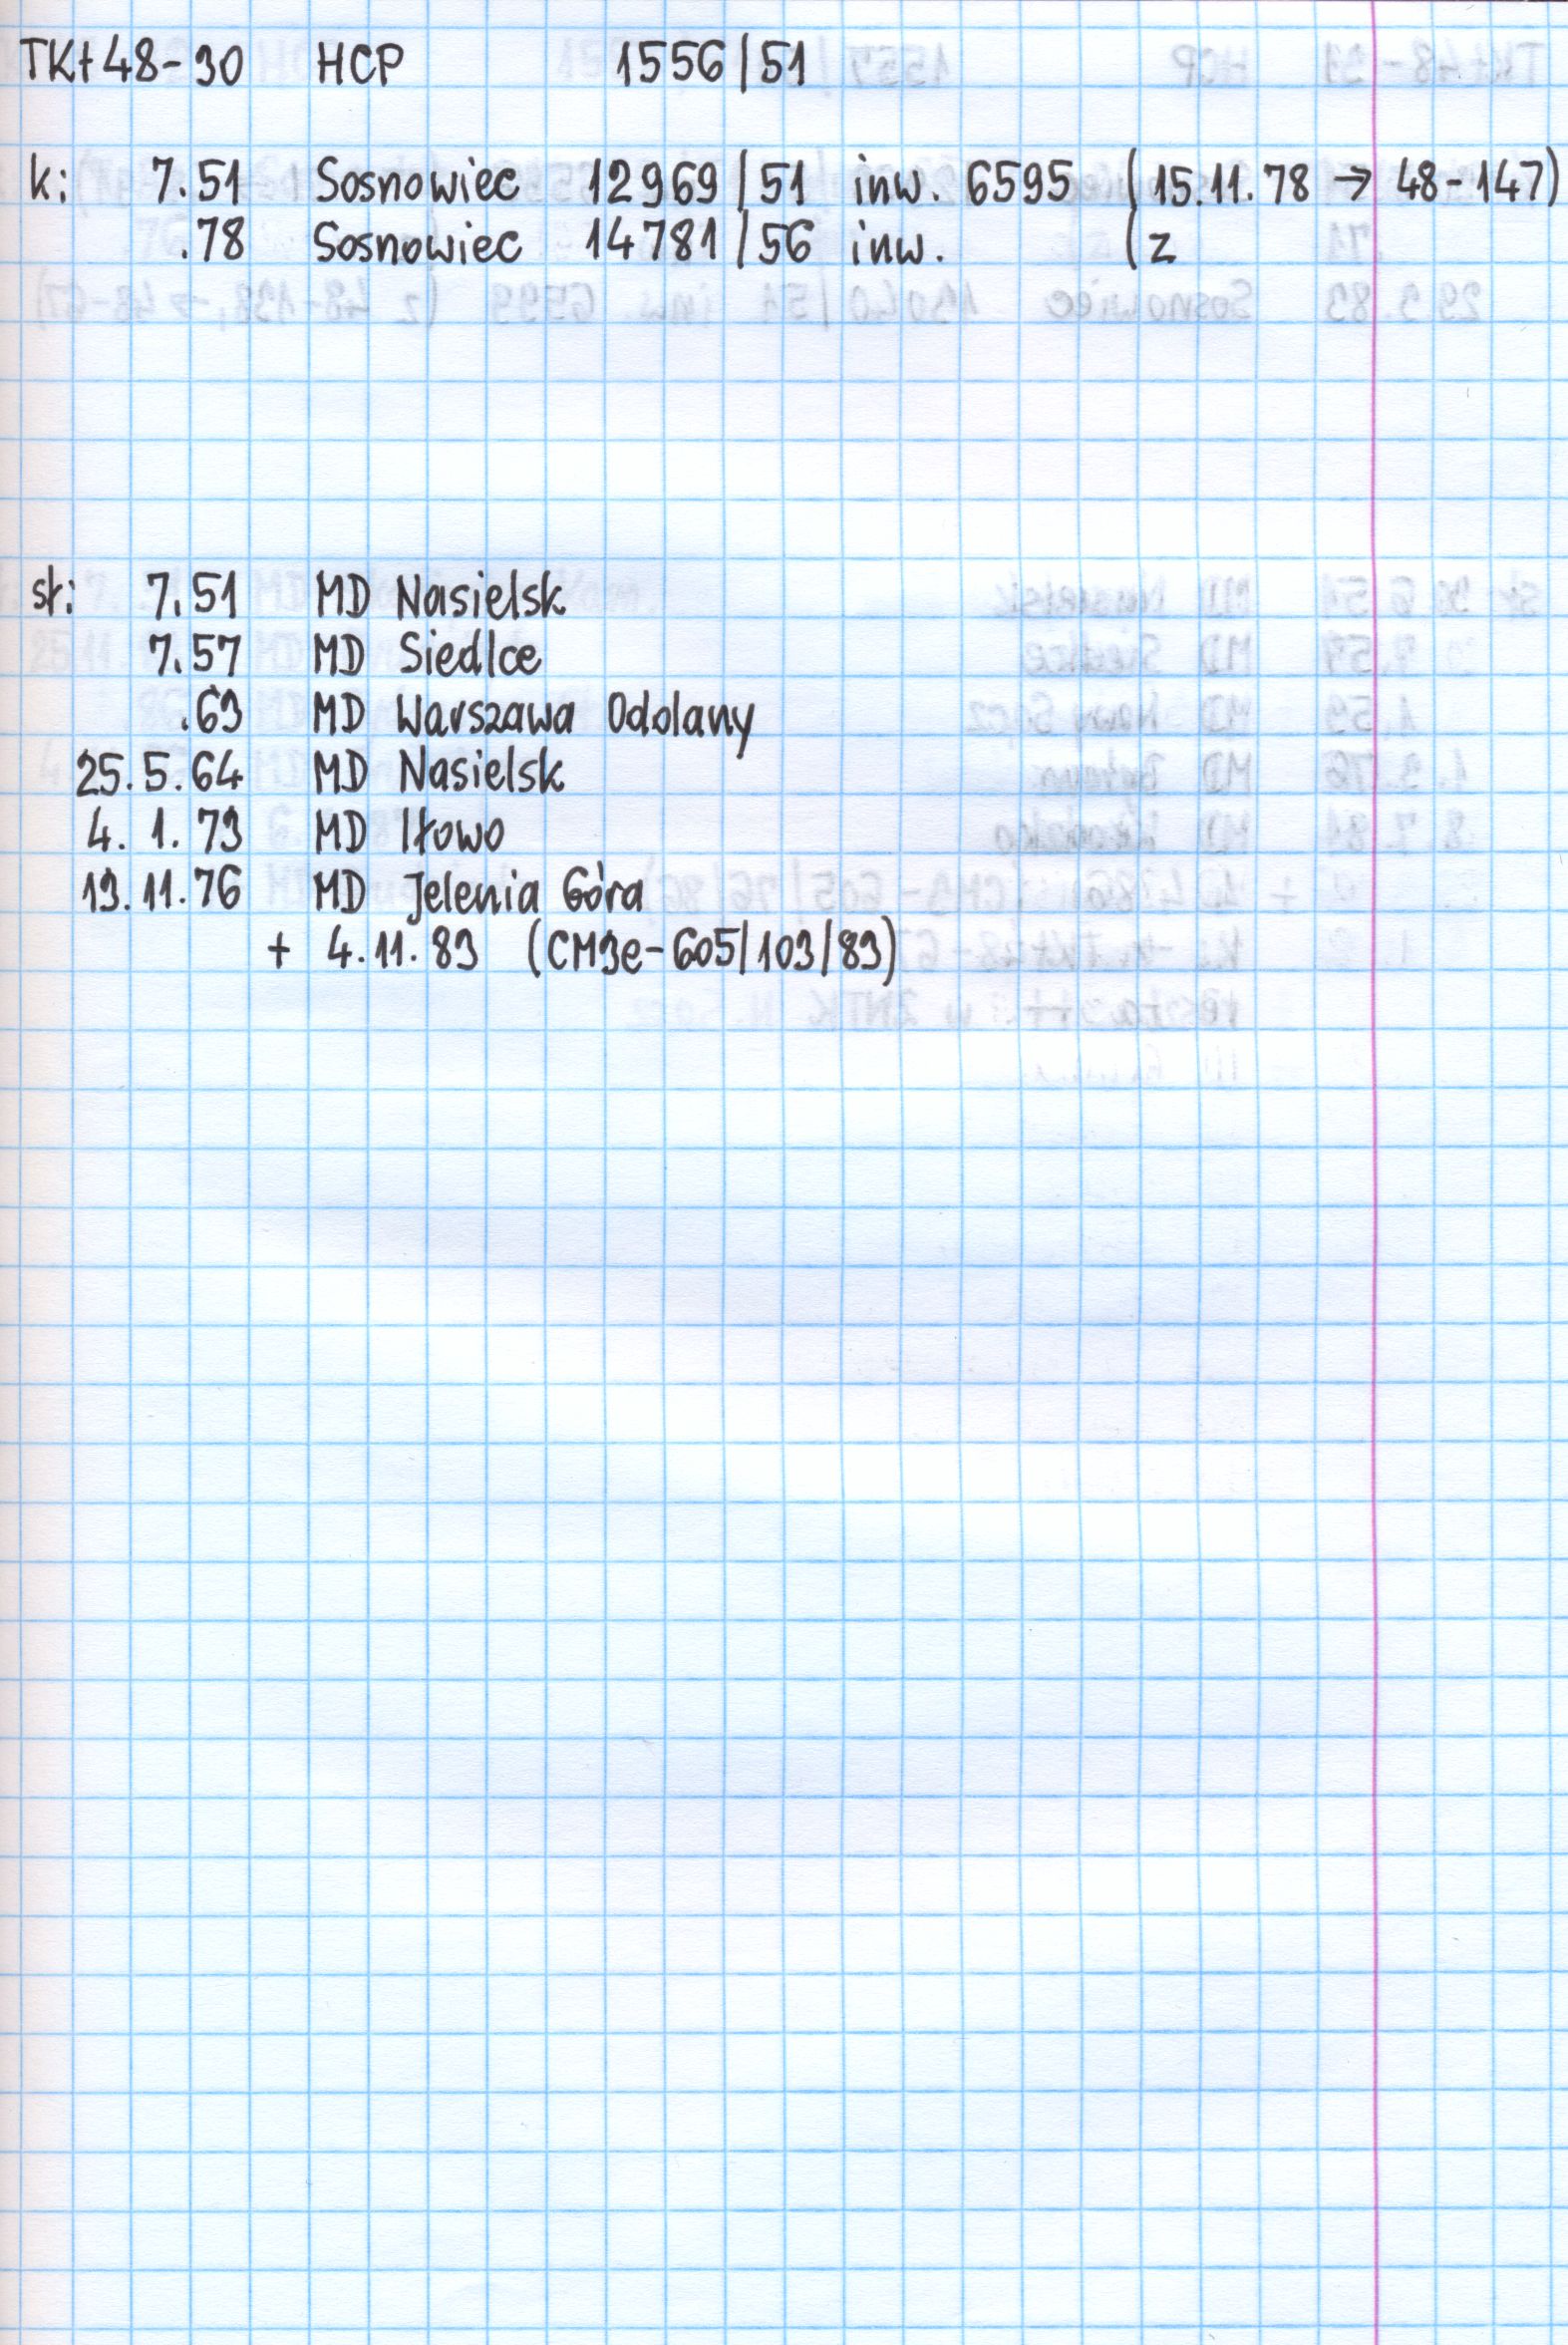 TKt48-30 HCP 1556/51
k: 7.51 Sosnowiec 12969/51 inw. 6595 (15.11.78 → 48-147)
.78 Sosnowiec 14781/56 inw. (z
st: 7.51 MD Nasielsk
7.57 MD Siedlce
.63 MD Warszawa Odolany
25.5.64 MD Nasielsk
4. 1. 73 MD Iłowo
13.11.76 MD Jelenia Góra
+ 4.11.83 (CM3e-605/103/83)